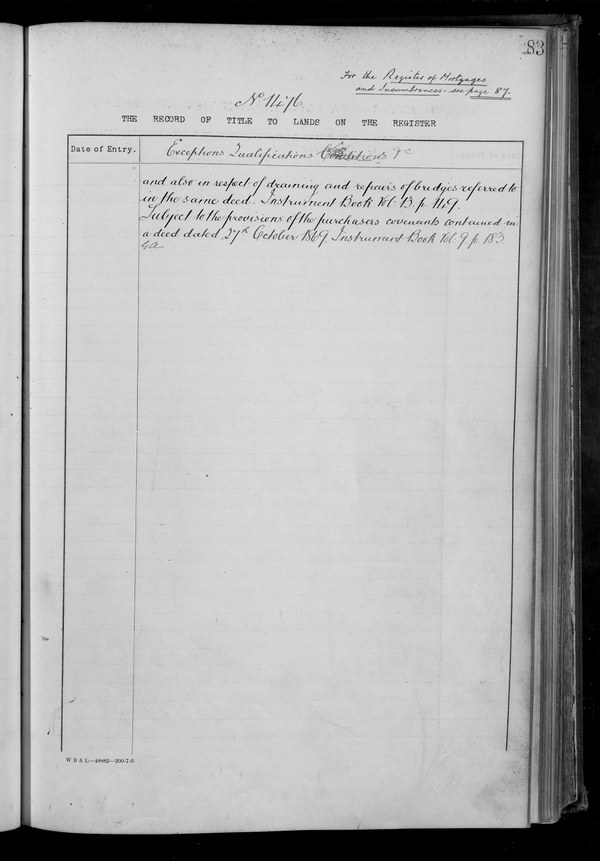 83
For the Register of Mortgages
and Incumbrances - see page 87.
No 1147
THE RECORD OF TITLE TO LANDS ON THE REGISTER
Date of Entry.
Exceptions Qualifications Conditions &c
and also in respect of draining and repairs of bridges referred to
in the same deed. Instrument Book Vol. 13. p. 149.
Subject to the provisions of the purchasers covenants contained in
a deed dated 27th October 1869. Instrument Book Vol. 9 p. 183
W B & L—48882—200-7-6